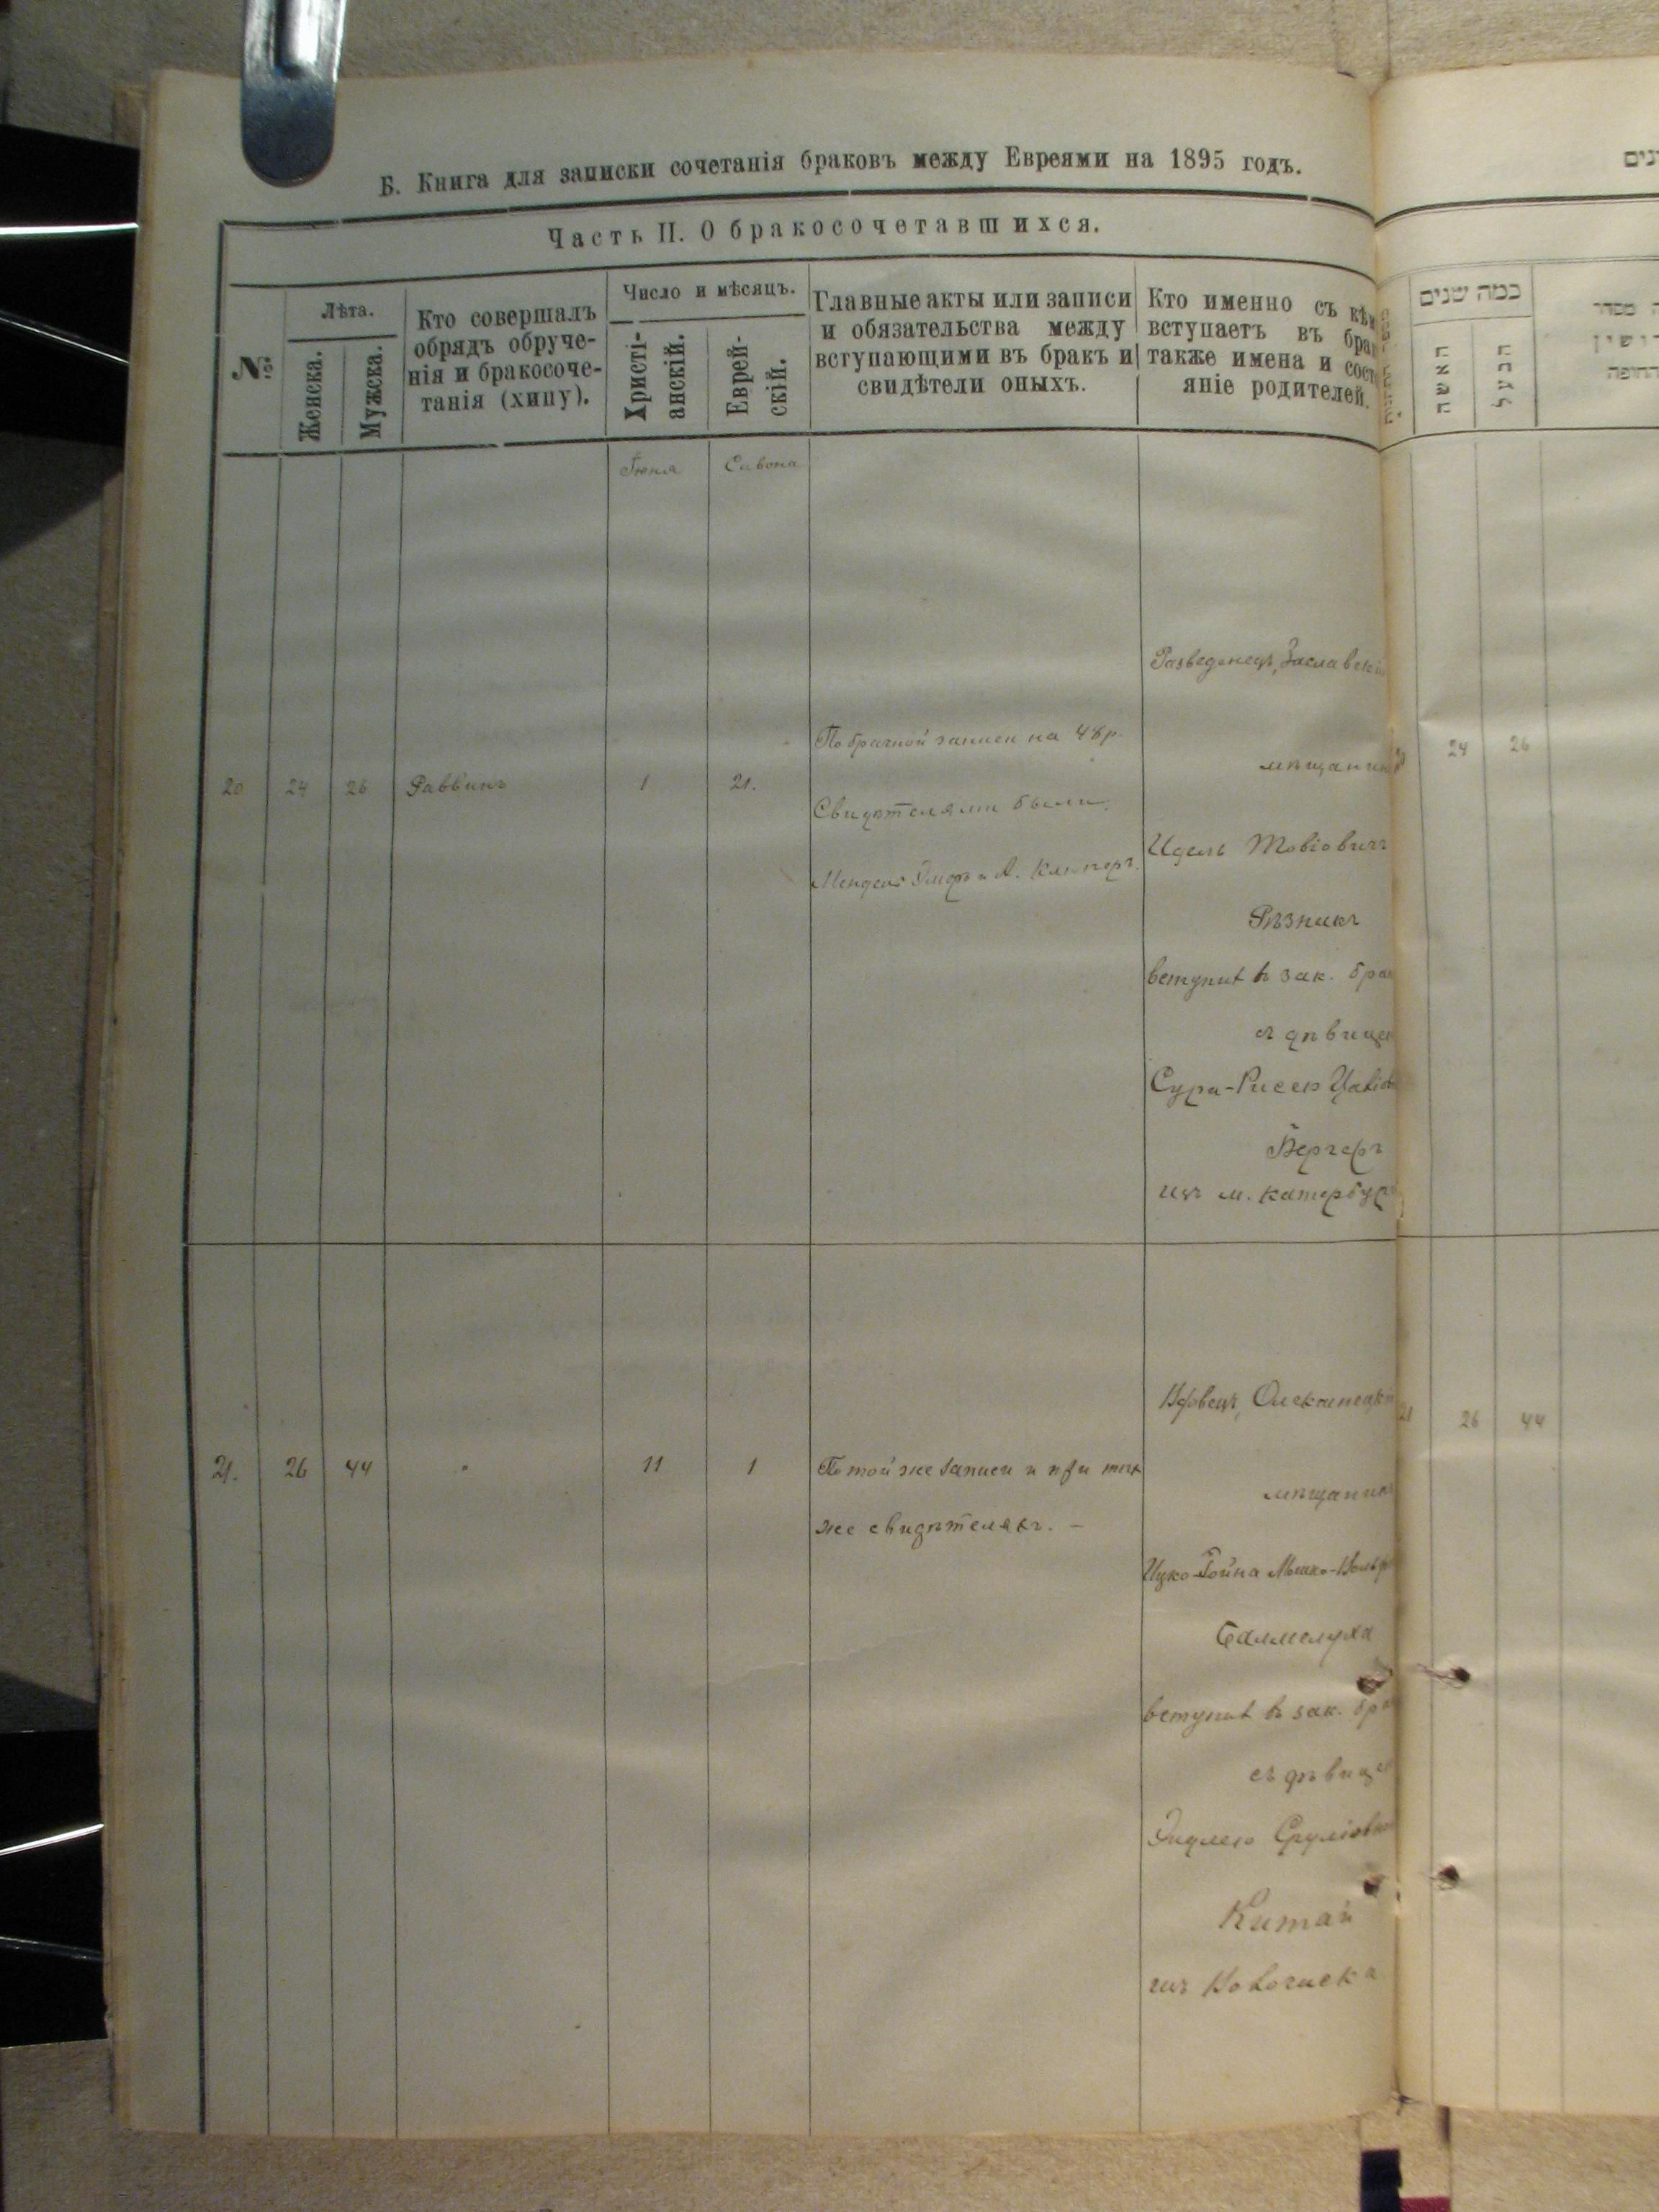 Б. Книга для записки сочетанія браковъ между Евреями на 1895 годъ.
Часть II. О бракосочетавшихся.
№
Лѣта.
Женска.
Мужска.
Кто совершалъ
обрядъ обруче-
нія и бракосоче-
танія (хипу).
Число и мѣсяцъ.
Христі-
анскій.
Еврей-
скій.
Главные акты или записи
и обязательства между
вступающими въ бракъ и
свидѣтели оныхъ.
Кто именно съ кѣм
вступаетъ въ брак
также имена и сост
яніе родителей.
Іюня
Сивона
20
24
26
Раввинъ
1
21.
По брачной записи на 48 р.
Свидѣтелями были:
Мендель и А.
Разведенецъ, Заславскій
мѣщанин
Идель Товіовичъ
Рѣзникъ
вступил въ зак. брак
съ дѣвицею
Сура-Рисею
Бергеръ
изъ м. Катербург
21.
26
44
"
11
1
По той же записи и при тѣхъ
же свидѣтеляхъ. –
Вдовецъ,
мѣщанин
Ицко-Іойна Мошко-Вольф
вступил въ зак. бра
съ дѣвице
Эидлею Срулiовн
Китай
изъ
כמה שנים
האשה
24
26
21
26
44